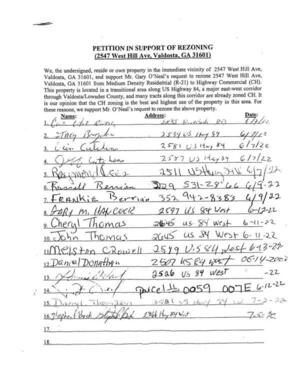 PETITION IN SUPPORT OF REZONING
(2547 West Hill Ave, Valdosta, GA 31601)
We, the undersigned, reside or own property in the immediate vicinity of 2547 West Hill Ave,
Valdosta, GA 31601, and support Mr. Gary O'Neal's request to rezone 2547 West Hill Ave,
Valdosta, GA 31601 from Medium Density Residential (R-21) to Highway Commercial (CH).
This property is located in a transitional area along US Highway 84, a major east-west corridor
through Valdosta/Lowndes County, and many tracts along this corridor are already zoned CH. It
is our opinion that CH zoning is the best and highest use of the property in this area. For
these reasons, we support Mr. O'Neal's request to rezone the above property.
Name: Address: Date:
1.
2. 2584 US Hwy 84 6/7/22
3. 2581 US Hwy 84 6/7/22
4. 2587 US Hwy 84 6/7/22
5. 2511 US Hwy 84
6. Russell Berrian 229 531-2866 6-9-22
7. Frankie Berrian 352 942-8383 6/9/22
8. Gary M. Hancock 2597 US 84 West 6-12-22
9. Cheryl Thomas 2645 US 84 West 6-11-22
10. John Thomas 2645 US 84 West 6-11-22
11. Melston Crowell 2579 US 84 West 6-13-22
12. Daniel Donathan 2507 US 84 West 06-14-2022
13. 2526 US 84 West -22
14. Parcel 0059 007E 6-12-22
15. 7-2-22
16. Stephen
17.
18.